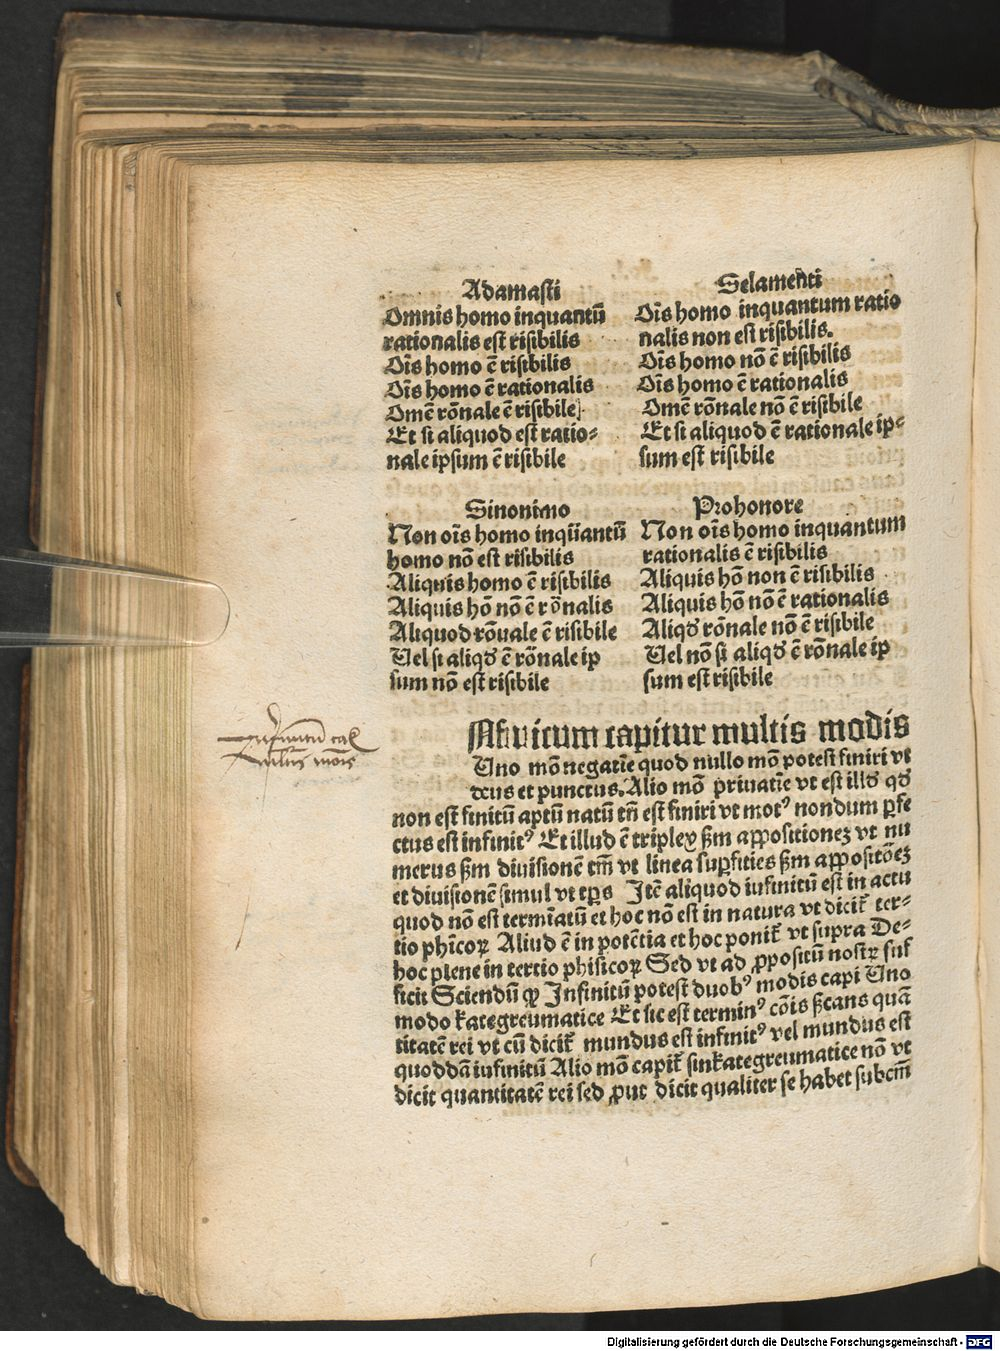 Adamasti
Omnis homo inquantū
rationalis est risibilis
Oīs homo ē risibilis
Oīs homo ē rationalis
Omē rōnale ē risibile
Et si aliquod est ratio⸗
nale ipsum ē risibile
Selamenti
Oīs homo inquantum ratio
nalis non est risibilis.
Oīs homo nō ē risibilis
Oīs homo ē rationalis
Omē rōnale nō ē risibile
Et si aliquod ē rationale ip⸗
sum est risibile
Sinonimo
Non oīs homo inquantū
homo nō est risibilis
Aliquis homo ē risibilis
Aliquis hō nō ē rōnalis
Aliquod rōuale ē risibile
Uel si aliqđ ē rōnale ip
sum nō est risibile
Prohonore
Non oīs homo inquantum
rationalis ē risibilis
Aliquis hō non ē risibilis
Aliquis hō nō ē rationalis
Aliqđ rōnale nō ē risibile
Uel nō si aliqđ ē rōnale ip
sum est risibile
capitur multis modis
Uno mō negatīe quod nullo mō potest finiri vt
deus et punctus. Alio mō priuatīe vt est illđ qđ
non est finitū aptū natū tn̄ est finiri vt motꝰ nondum ꝑfe
ctus est infinitꝰ Et illud ē triplex ẜm appositionez vt nu
merus ẜm diuisionē tm̄ vt linea suꝑfities ẜm appositōeꝫ
et diuisionē simul vt tp̄s Itē aliquod iufinitū est in actu
quod nō est termīatū et hoc nō est in natura vt dicit᷑ ter⸗
tio phīcoꝝ Aliud ē in potētia et hoc ponit᷑ vt supra De⸗
hoc plene in tertio phisicoꝝ Sed vt ad ꝓpositū nostꝝ suf
ficit Sciendū ꝙ Infinitū potest duobꝰ modis capi Uno
modo kategreumatice Et sic est terminꝰ cōis ẜcans quā
titatē rei vt cū dicit᷑ mundus est infinitꝰ vel mundus est
quoddā iufinitū Alio mō capit᷑ sinkategreumatice nō vt
dicit quantitatē rei sed ꝓut dicit qualiter se habet subcm̄
Digitalisierung gefördert durch die Deutsche Forschungsgemeinschaft - DFG